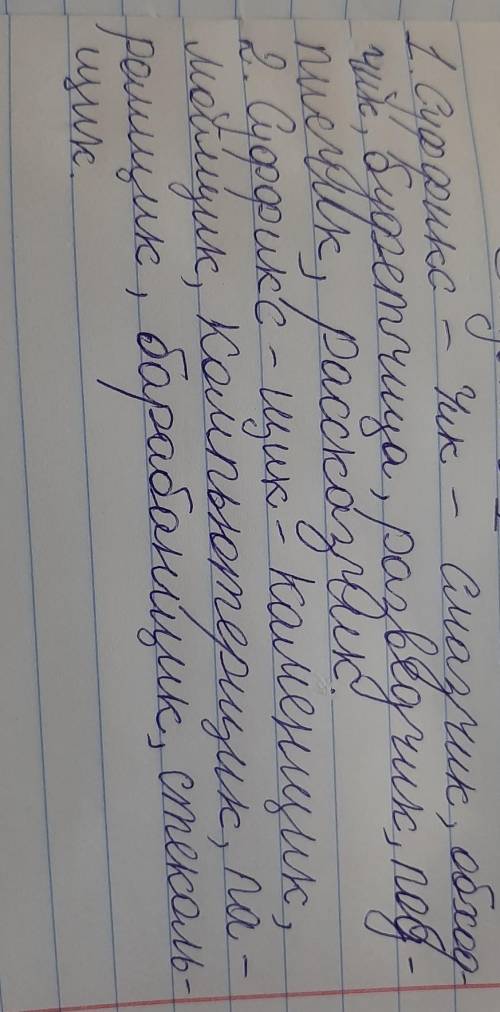 1. Суффикс - чик - смазчик, обход-
чик, буфетчица, разведчик, под-
писчик, рассказчик.
2. Суффикс - щик - каменщик,
мойщик, компьютерщик, па-
ромщик, барабанщик, стеколь-
щик.